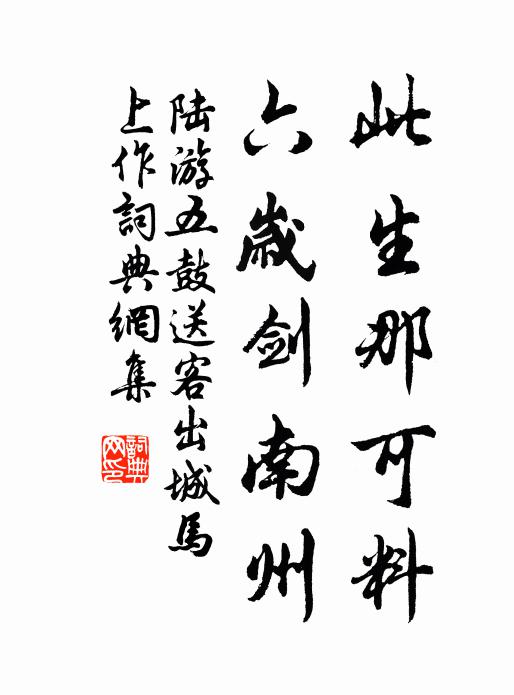 此生那可料
六歲剑南州
陆游五鼓送客出城馬
上作詞典網集
詞典
网印